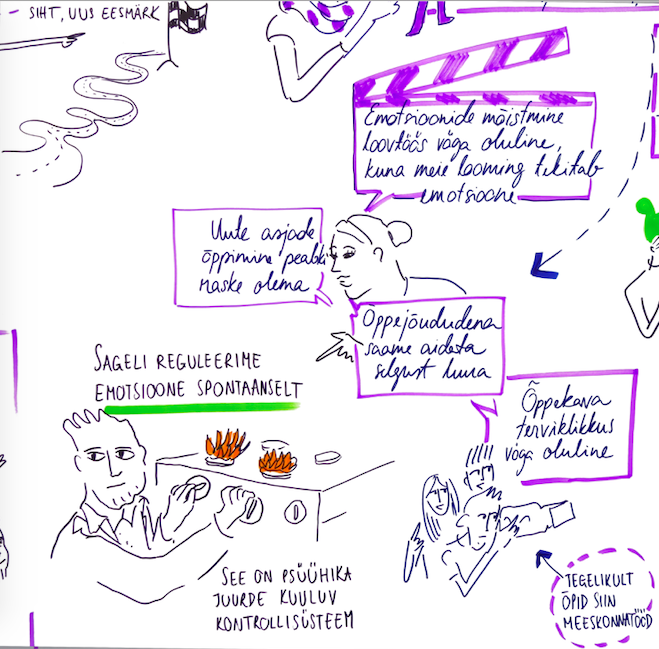 - SIHT, UUS EESMÄRK
Emotsioonide mõistmine
loovtöös väga oluline,
kuna meie looming tekitab
emotsioone
Uute asjade
õppimine peabki
raske olema
Õppejõududena
saame aidata
selgust luua
SAGELI REGULEERIME
EMOTSIOONE SPONTAANSELT
Õppekava
terviklikkus
väga oluline
SEE ON PSÜÜHIKA
JUURDE KUULUV
KONTROLLISÜSTEEM
TEGELIKULT
ÕPID SIIN
MEESKONNATÖÖD